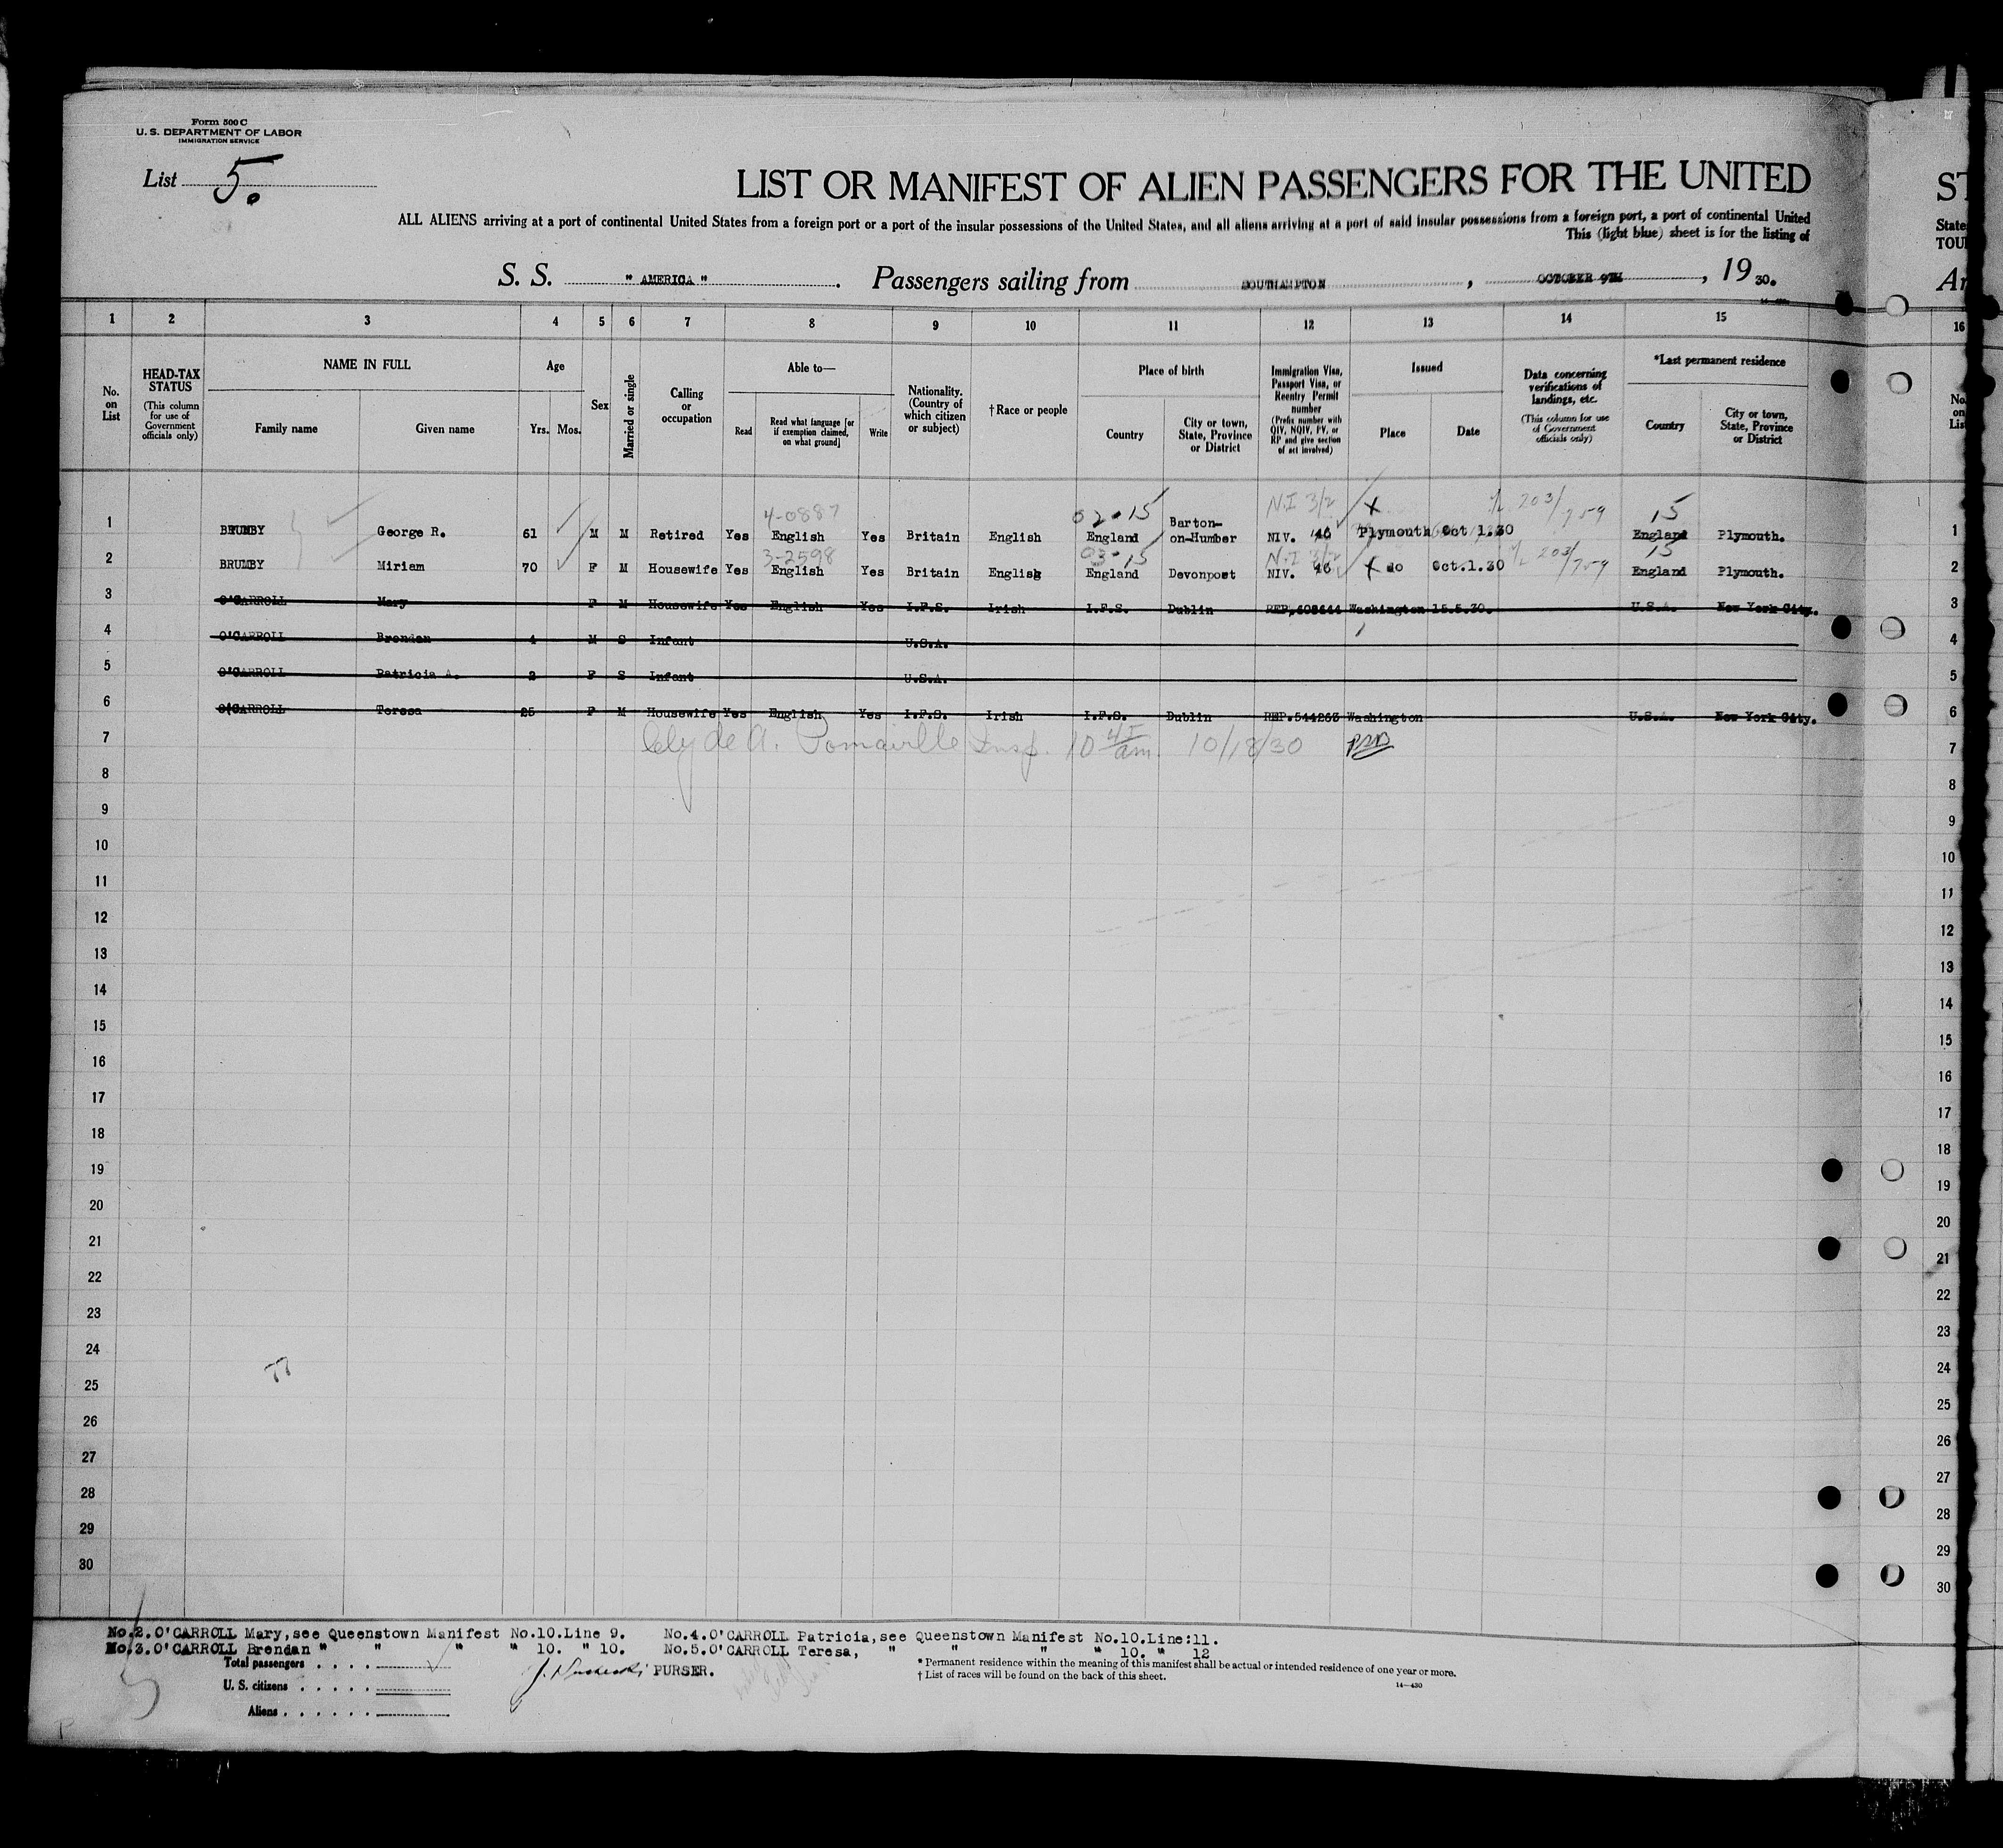 Form 500 C
U. S. DEPARTMENT OF LABOR
IMMIGRATION SERVICE
List 5.
LIST OR MANIFEST OF ALIEN PASSENGERS FOR THE UNITED
ALL ALIENS arriving at a port of continental United States from a foreign port or a port of the insular possessions of the United States, and all aliens arriving at a port of said insular possessions from a foreign port, a port of continental United
This (light blue) sheet is for the listing of
S. S. " AMERICA " . Passengers sailing from SOUTHAMPTON , OCTOBER 9TH , 19 30.
ST
State
TOU
Ar
1 2 3 4 5 6 7 8 9 10 11 12 13 14 15 16
No. on List
HEAD-TAX STATUS
(This column for use of Government officials only)
NAME IN FULL
Family name Given name
Age
Yrs. Mos.
Sex
Married or single
Calling or occupation
Able to—
Read Read what language [or if exemption claimed, on what ground] Write
Nationality. (Country of which citizen or subject)
†Race or people
Place of birth
Country City or town, State, Province or District
Immigration Visa, Passport Visa, or Reentry Permit number
(Prefix number with QIV, NQIV, PV, or RP and give section of act involved)
Issued
Place Date
Data concerning verifications of landings, etc.
(This column for use of Government officials only)
*Last permanent residence
Country City or town, State, Province or District
4-0887 02-15 N.I 3/2 X 203/759 15
1 BRUMBY George R. 61 M M Retired Yes English Yes Britain English England Barton-on-Humber NIV. 46 Plymouth Oct 1.30 England Plymouth. 1
3-2598 03-15 N.I 3/2 203/759 15
2 BRUMBY Miriam 70 F M Housewife Yes English Yes Britain English England Devonport NIV. X do Oct.1.30 England Plymouth. 2
3 O'CARROLL Mary F M Housewife Yes English Yes I.F.S. Irish I.F.S. Dublin Washington 15.5.30. U.S.A. New York City. 3
4 O'CARROLL Brendan 4 M S Infant U.S.A. 4
5 O'CARROLL Patricia A. 2 F S Infant U.S.A. 5
6 O'CARROLL Teresa 25 F M Housewife Yes English Yes I.F.S. Irish I.F.S. Dublin REP.544263 Washington U.S.A. New York City. 6
7 Clyde A. Pomaville Insp. 10 am. 10/18/30 7
8 8
9 9
10 10
11 11
12 12
13 13
14 14
15 15
16 16
17 17
18 18
19 19
20 20
21 21
22 22
23 23
24 24
25 25
26 26
27 27
28 28
29 29
30 30
No.2.O'CARROLL Mary,see Queenstown Manifest No.10.Line 9. No.4.O'CARROLL Patricia,see Queenstown Manifest No.10.Line:11.
No.3.O'CARROLL Brendan " " " " 10. " 10. No.5.O'CARROLL Teresa, " " " " 10. " 12
Total passengers . . . .
PURSER.
* Permanent residence within the meaning of this manifest shall be actual or intended residence of one year or more.
† List of races will be found on the back of this sheet.
U. S. citizens . . . . .
14—430
Aliens . . . . . .